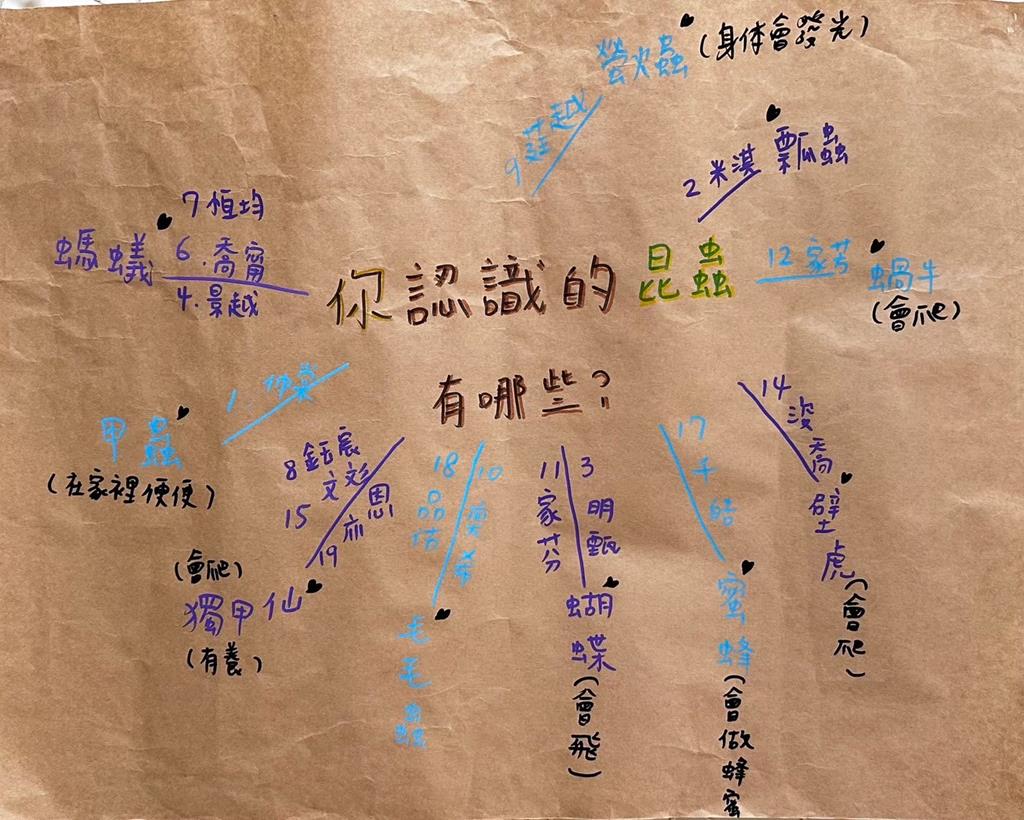 你認識的昆蟲
有哪些?
螢火蟲(身体會發光)
9 莛越
2 米淇 瓢蟲
12 家芳 蝸牛
(會爬)
14 沒喬 壁虎(會爬)
17 千皓 蜜蜂(會做蜂蜜
3 明甄
11 家芬
蝴蝶(會飛)
10 奕希
18 品佑
毛毛蟲
8 鈺宸
15 文彣
19 亦恩
(會爬)
獨甲仙
(有養)
1.
甲蟲
(在家裡便便)
7 恒均
螞蟻 6.喬甯
4.景越